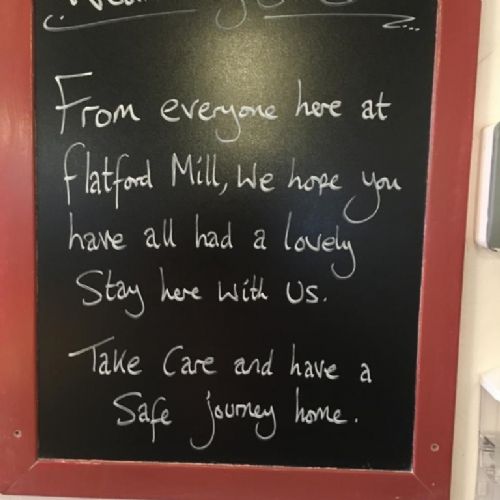 From everyone here at
Flatford Mill, We hope you
have all had a lovely
Stay here with us.
Take Care and have a
Safe journey home.